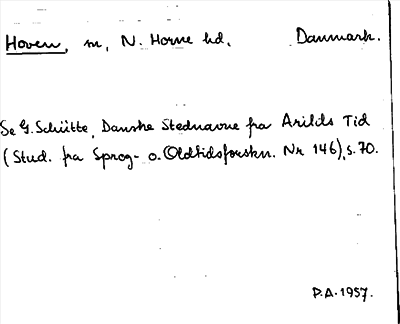 Hoven, m, N. Horne hd. Danmark.
Se G. Schütte, Danske Stednavne fra Arilds Tid
(Stud. fra Sprog- o. Oldtidsforskn. Nr 146), s. 70.
P.A. 1957.